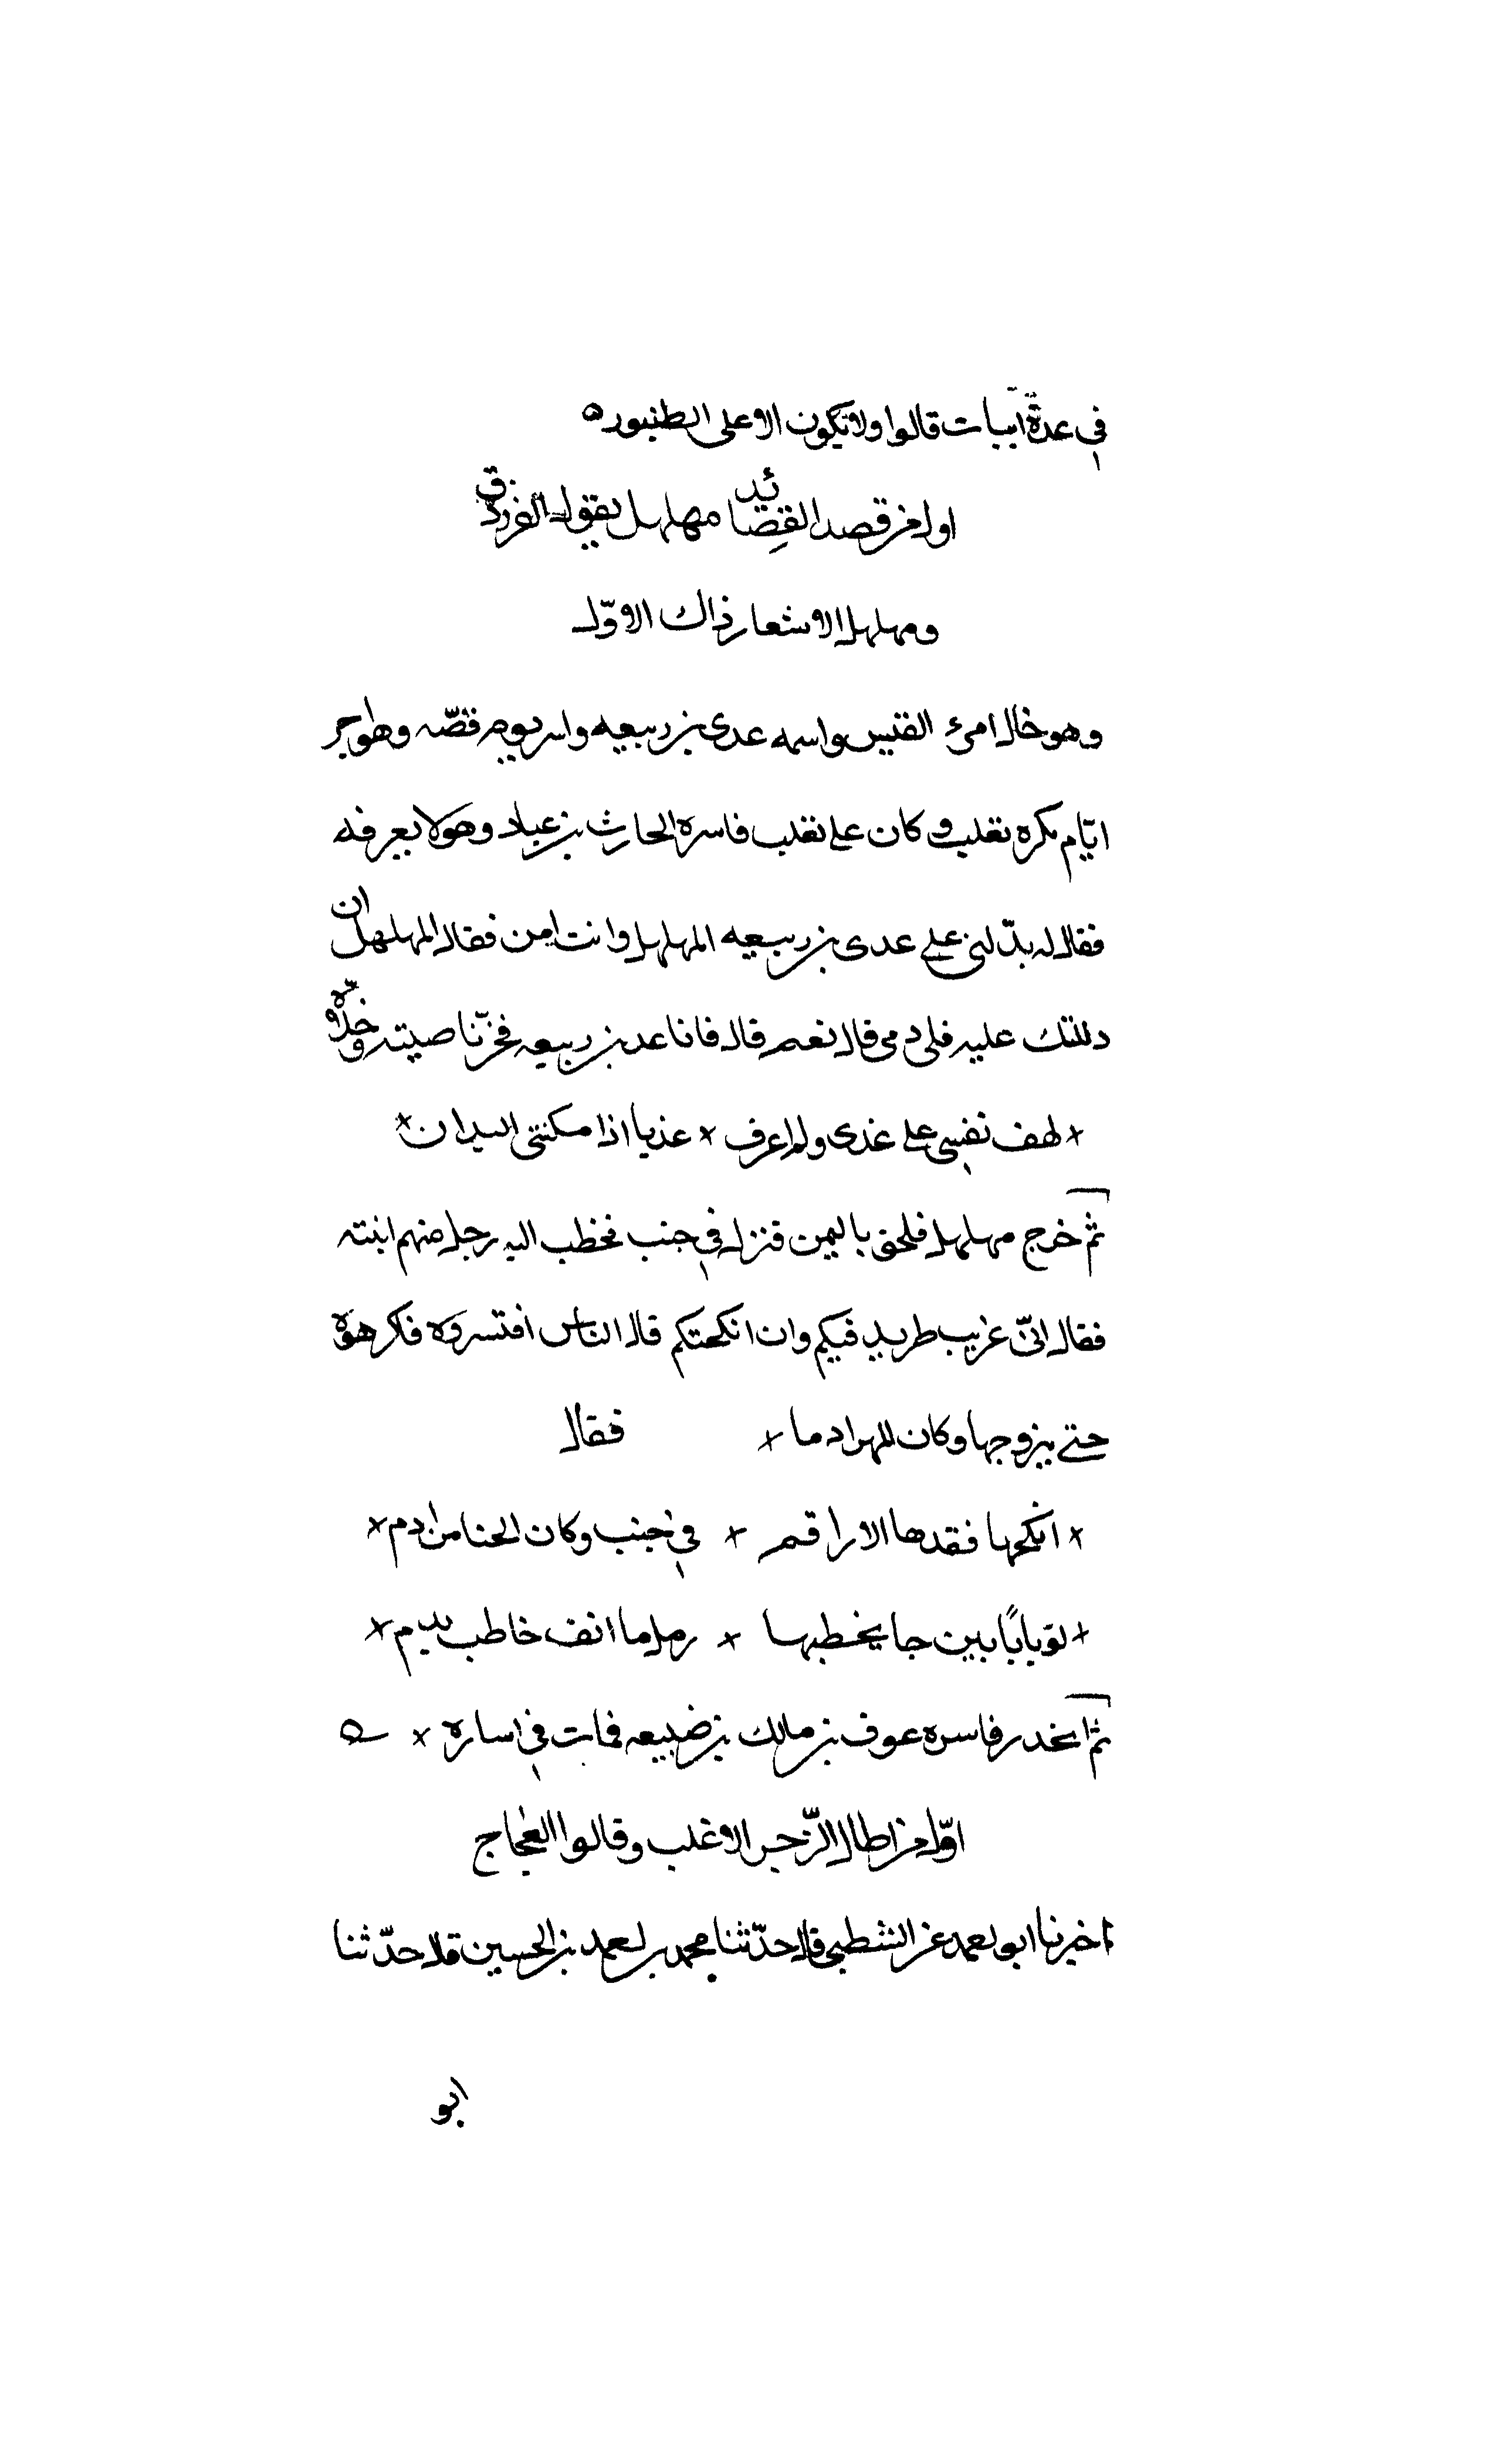 في عدة ابيات قالوا ولا تكون الا على الطنبور ه
اول من قصد القصائد مهلهل يقول الفرزدق
ومهلهل الاشعار ذاك الاوّل
وهو خال امرئ القيس واسمه عدى بن ربيعه واسر يوم قضّه وهو اخر
ايّام بكره تغلب وكان على تغلب فاسره الحارث بن عباد وهو لا يعرفه
فقال له بدّلنى على عدى بن ربيعه المهلهل وانت امن فقال المهلهل ان
دللتك عليه فلى دمى قال نعم قال فانا عدى بن ربيعه فجزّ ناصيته وخلاّه
× لهف نفسى على عدى ولم اعرف × عديا اذا مكنتنى اليدان ×
ثم خرج مهلهل فلحق باليمن فنزل في جنب فخطب اليه رجل منهم ابنته
فقال انّى غريب طريد فيكم وان انكحتكم قال الناس اقتسروه فاكرهوه
حتى يزوجها وكان المهر ادما × فقال
× انكحها فقدها الاراقم × في جنب وكان الحنا من ادم ×
× لو بابًا بين جا يخطبها × رمل ما انف خاطب بدم ×
ثم انحدر فاسره عوف بن مالك بن ضبيعه فمات في اساره × ه
اوّل من اطال الرّجز الاغلب وقالوا العجاج
اخبرنا ابو احمد عن الشطبى قال حدّثنا محمد بن احمد بن الحسين قال حدّثنا
ابو